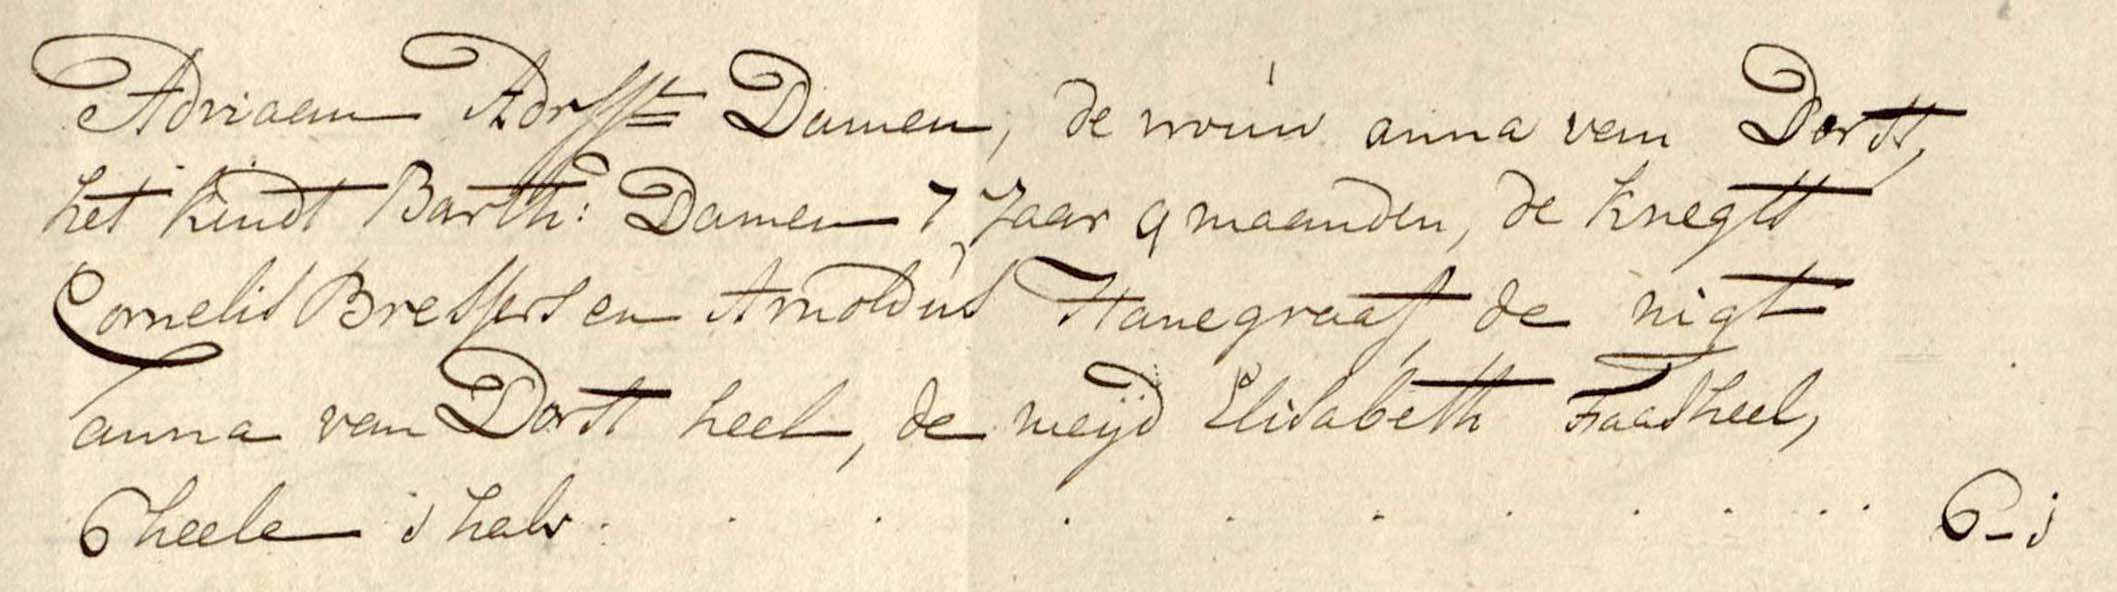 Adriaen Adrsse Damen, de vrouw anna van Dorst,
het kindt Barth: Damen 7 Jaar 9 maanden, de knegts
Cornelis Bressers en Arnoldus Hanegraaf, de nigt
anna van Dorst heel, de meijd Elisabeth Faasheel,
6 heele i halv . . . . . . . . . . . . 6 - i